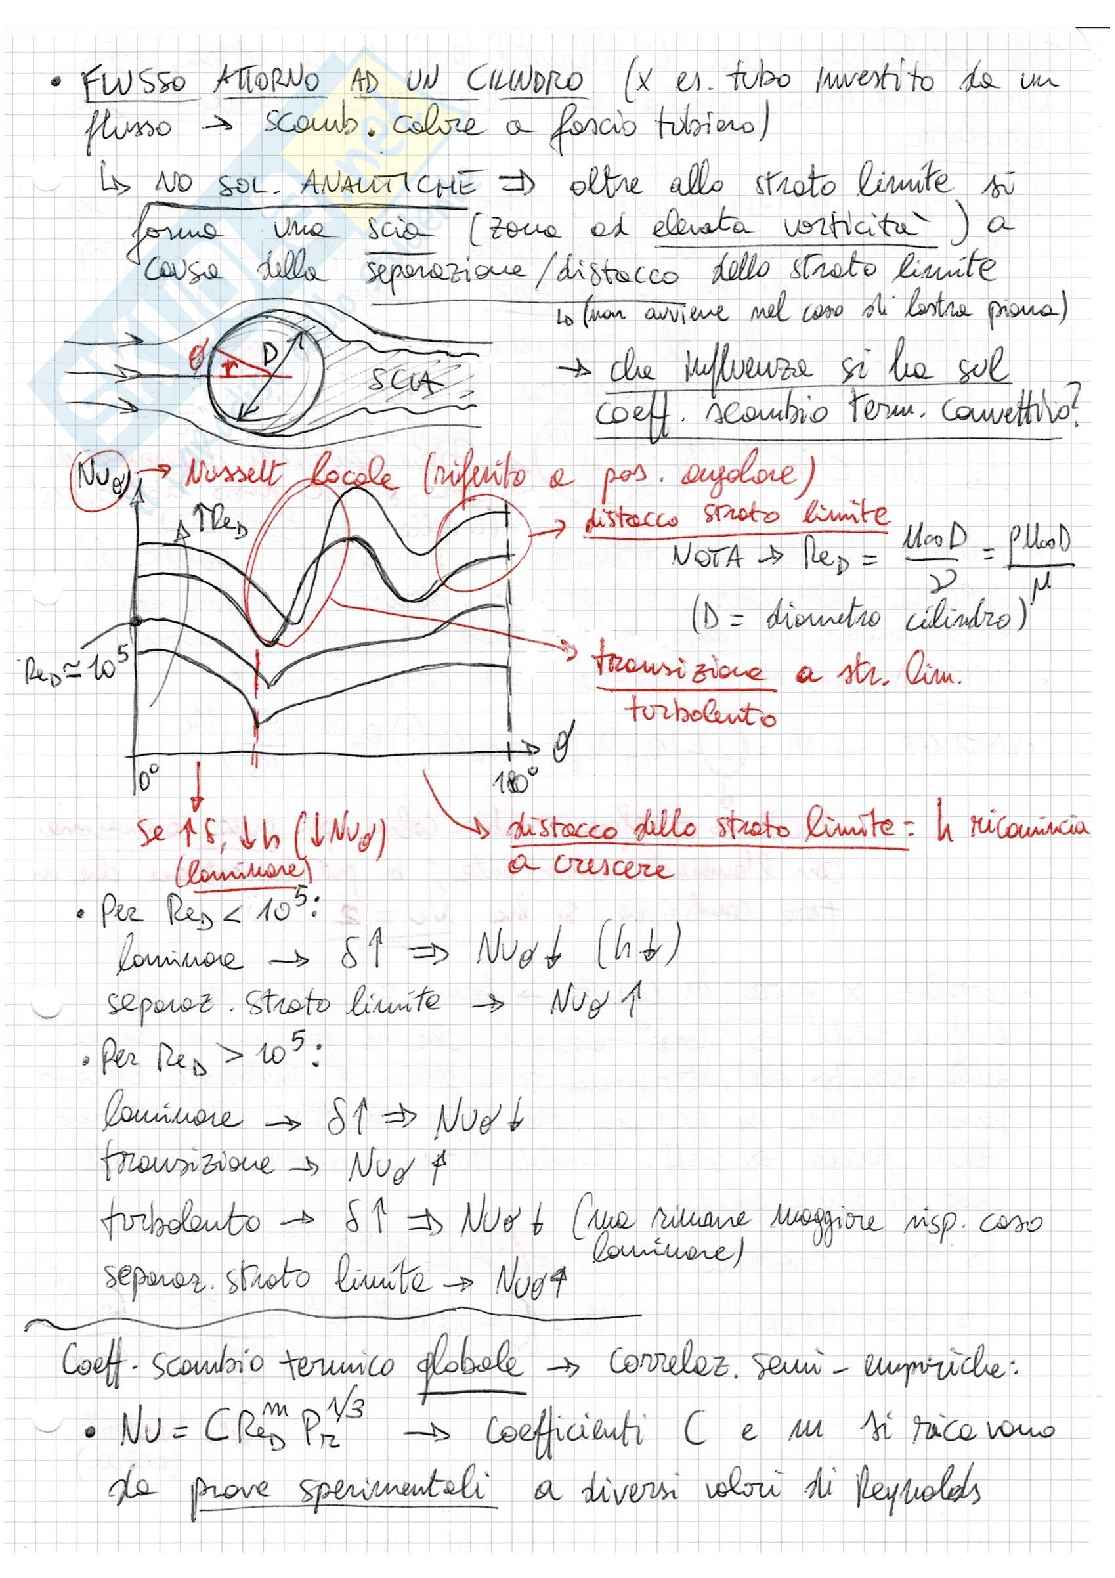 • FLUSSO ATTORNO AD UN CILINDRO (x es. tubo investito da un
flusso → scamb. calore a fascio tubiero)
↳ NO SOL. ANALITICHE ⇒ oltre allo strato limite si
forma una scia (zona ad elevata vorticità) a
causa della separazione/distacco dello strato limite
↳ (non avviene nel caso di lastra piana)
θ r D SCIA
→ che influenza si ha sul
coeff. scambio term. convettivo?
Nuθ → Nusselt locale (riferito a pos. angolare)
↑ReD
→ distacco strato limite
NOTA → ReD = u∞D/ν = ρu∞D/μ
(D = diametro cilindro)
ReD ≃ 10⁵
→ transizione a str. lim.
turbolento
0° 180° θ
se ↑δ, ↓h (↓Nuθ)
(laminare)
→ distacco dello strato limite = h ricomincia
a crescere
• Per ReD < 10⁵:
laminare → δ↑ ⇒ Nuθ↓ (h↓)
separaz. strato limite → Nuθ↑
• Per ReD > 10⁵:
laminare → δ↑ ⇒ Nuθ↓
transizione → Nuθ↑
turbolento → δ↑ ⇒ Nuθ↓ (ma rimane maggiore risp. caso
laminare)
separaz. strato limite → Nuθ↑
Coeff. scambio termico globale → correlaz. semi-empiriche:
• Nu = C ReD^m Pr^1/3 → coefficienti C e m si ricavano
da prove sperimentali a diversi valori di Reynolds